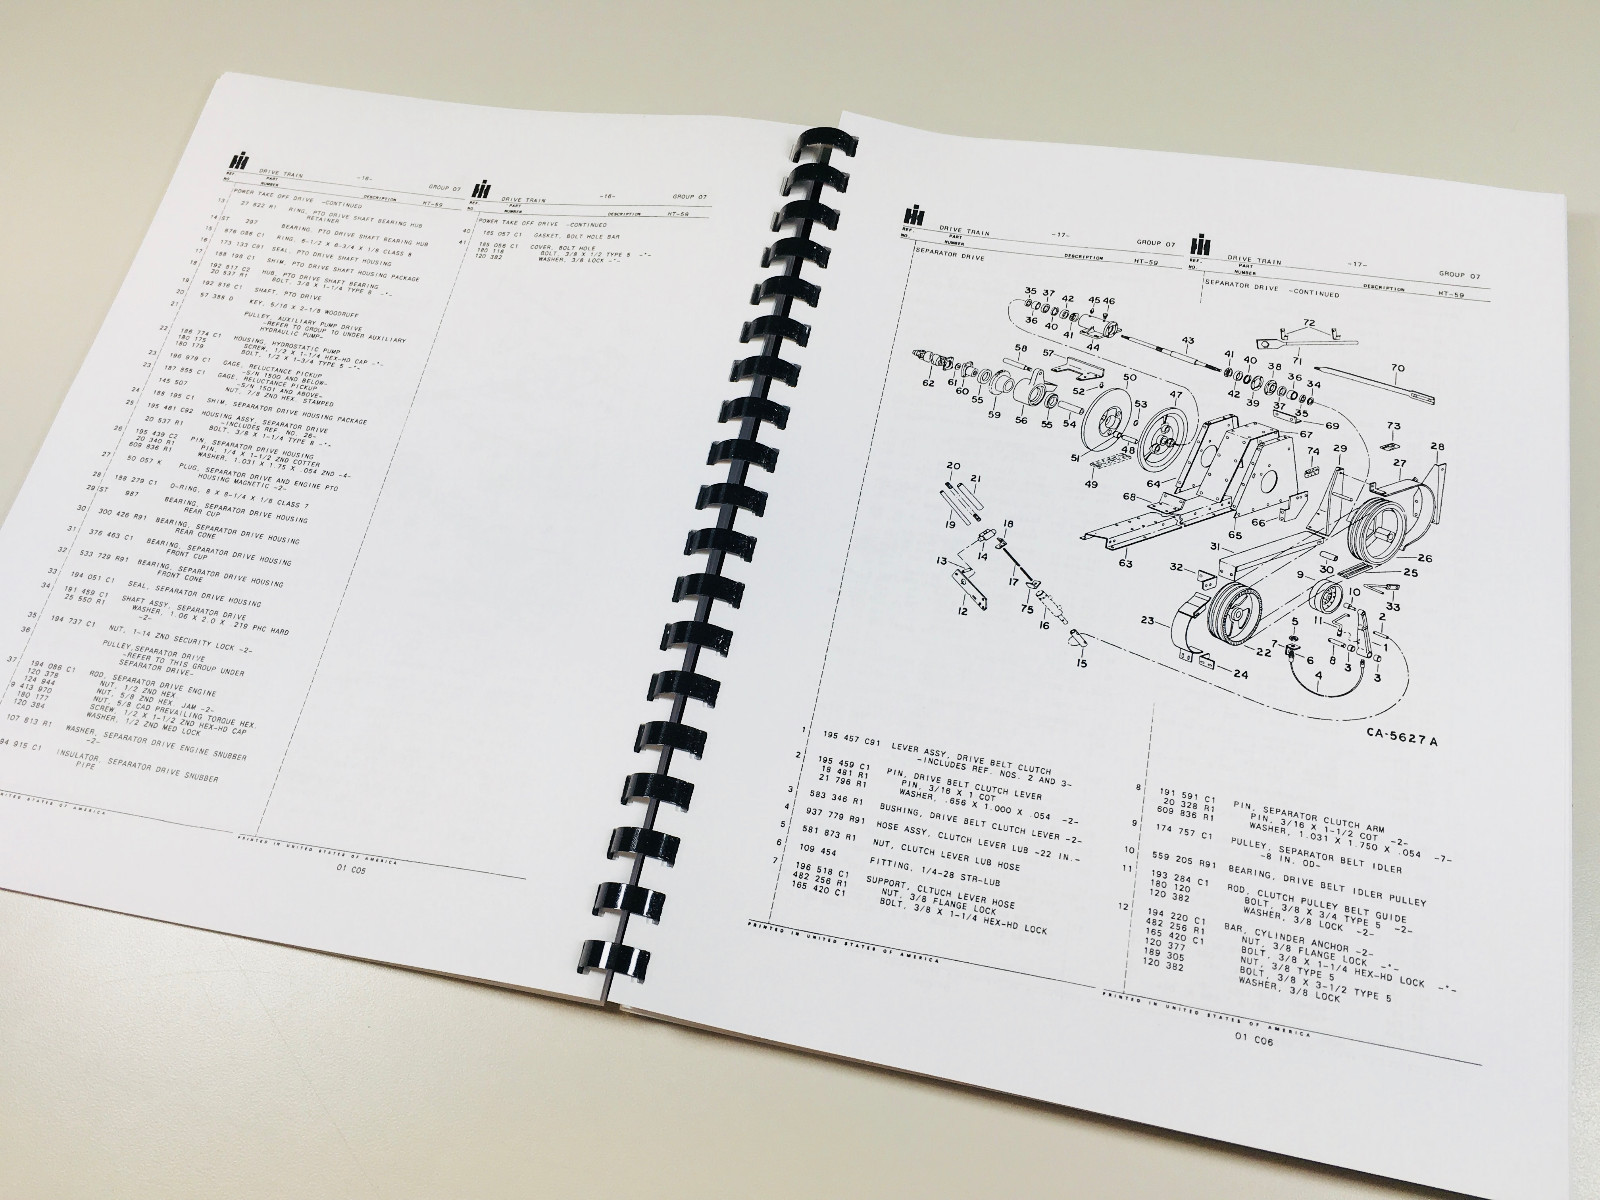 DRIVE TRAIN -16- GROUP 07
REF. NO. PART NUMBER DESCRIPTION HT-59
POWER TAKE OFF DRIVE -CONTINUED
13 27 822 R1 RING, PTO DRIVE SHAFT BEARING HUB
RETAINER
14 ST 297 BEARING, PTO DRIVE SHAFT BEARING HUB
15 RING, 6-1/2 X 6-3/4 X 1/8 CLASS 8
16 173 133 C91 SEAL, PTO DRIVE SHAFT HOUSING
17 188 196 C1 SHIM, PTO DRIVE SHAFT HOUSING PACKAGE
18 192 817 C2 HUB, PTO DRIVE SHAFT BEARING
20 537 R1 BOLT, 3/8 X 1-1/4 TYPE 8 -*-
19 192 816 C1 SHAFT, PTO DRIVE
20 57 388 D KEY, 5/16 X 2-1/8 WOODRUFF
21 PULLEY, AUXILIARY PUMP DRIVE
-REFER TO GROUP 10 UNDER AUXILIARY
HYDRAULIC PUMP-
22 186 774 C1 HOUSING, HYDROSTATIC PUMP
180 175 SCREW, 1/2 X 1-1/4 HEX-HD CAP -*-
180 179 BOLT, 1/2 X 1-3/4 TYPE 5 -*-
23 196 979 C1 GAGE, RELUCTANCE PICKUP
-S/N 1500 AND BELOW-
23 187 855 C1 GAGE, RELUCTANCE PICKUP
-S/N 1501 AND ABOVE-
145 507 NUT, 7/8 2ND HEX, STAMPED
24 188 195 C1 SHIM, SEPARATOR DRIVE HOUSING PACKAGE
25 195 461 C92 HOUSING ASSY, SEPARATOR DRIVE
-INCLUDES REF. NO. 26-
20 537 R1 BOLT, 3/8 X 1-1/4 TYPE 8 -*-
26 195 439 C2 PIN, SEPARATOR DRIVE HOUSING
20 340 R1 PIN, 1/4 X 1-1/2 2ND COTTER
609 836 R1 WASHER, 1.031 X 1.75 X .054 2ND -4-
27 50 057 K PLUG, SEPARATOR DRIVE AND ENGINE PTO
HOUSING MAGNETIC -2-
28 188 279 C1 O-RING, 8 X 8-1/4 X 1/8 CLASS 7
29 ST 987 BEARING, SEPARATOR DRIVE HOUSING
REAR CUP
30 300 426 R91 BEARING, SEPARATOR DRIVE HOUSING
REAR CONE
31 376 463 C1 BEARING, SEPARATOR DRIVE HOUSING
FRONT CUP
32 533 729 R91 BEARING, SEPARATOR DRIVE HOUSING
FRONT CONE
33 194 051 C1 SEAL, SEPARATOR DRIVE HOUSING
34 191 459 C1 SHAFT ASSY, SEPARATOR DRIVE
25 550 R1 WASHER, 1.06 X 2.0 X .219 PHC HARD
-2-
35 194 737 C1 NUT, 1-14 2ND SECURITY LOCK -2-
36 PULLEY, SEPARATOR DRIVE
-REFER TO THIS GROUP UNDER
SEPARATOR DRIVE-
37 194 086 C1 ROD, SEPARATOR DRIVE ENGINE
120 378 NUT, 1/2 2ND HEX
124 944 NUT, 5/8 2ND HEX JAM -2-
9 413 970 NUT, 5/8 CAD PREVAILING TORQUE HEX.
180 177 SCREW, 1/2 X 1-1/2 2ND HEX-HD CAP
120 384 WASHER, 1/2 2ND MED LOCK
107 813 R1 WASHER, SEPARATOR DRIVE ENGINE SNUBBER
-2-
94 915 C1 INSULATOR, SEPARATOR DRIVE SNUBBER
PIPE
UNITED STATES OF AMERICA
DRIVE TRAIN -16- GROUP 07
REF. NO. PART NUMBER DESCRIPTION HT-59
POWER TAKE OFF DRIVE -CONTINUED
40 165 057 C1 GASKET, BOLT HOLE BAR
41 165 058 C1 COVER, BOLT HOLE
180 116 BOLT, 3/8 X 1/2 TYPE 5 -*-
120 382 WASHER, 3/8 LOCK -*-
PRINTED IN UNITED STATES OF AMERICA
01 C05
DRIVE TRAIN -17- GROUP 07
REF. NO. PART NUMBER DESCRIPTION HT-59
SEPARATOR DRIVE
DRIVE TRAIN -17- GROUP 07
REF. NO. PART NUMBER DESCRIPTION HT-59
SEPARATOR DRIVE -CONTINUED
35 37 42 45 46
36 40 41 44
72
43
71
70
58 57
62 61 60 55 59 56 55 54
52 50 53 47
51 48 49
41 40 38 36 34
42 39 37 35
69 67
73
29 27 28
74
64 68 66 65 63
20 21 19
18 14 13 12 17 75 16 15
31 32 30 9 26 25
10 33 2
23 22 24
5 11 7 6 8 3 1 3 4
CA-5627A
1 195 457 C91 LEVER ASSY, DRIVE BELT CLUTCH
-INCLUDES REF. NOS. 2 AND 3-
2 195 459 C1 PIN, DRIVE BELT CLUTCH LEVER
18 481 R1 PIN, 3/16 X 1 COT
21 796 R1 WASHER, .656 X 1.000 X .054 -2-
3 583 346 R1 BUSHING, DRIVE BELT CLUTCH LEVER -2-
4 937 779 R91 HOSE ASSY, CLUTCH LEVER LUB -22 IN.-
5 581 873 R1 NUT, CLUTCH LEVER LUB HOSE
6 109 454 FITTING, 1/4-28 STR-LUB
7 196 518 C1 SUPPORT, CLTUCH LEVER HOSE
482 256 R1 NUT, 3/8 FLANGE LOCK
165 420 C1 BOLT, 3/8 X 1-1/4 HEX-HD LOCK
PRINTED IN UNITED STATES OF AMERICA
8 191 591 C1 PIN, SEPARATOR CLUTCH ARM
20 328 R1 PIN, 3/16 X 1-1/2 COT -2-
609 836 R1 WASHER, 1.031 X 1.750 X .054 -7-
9 174 757 C1 PULLEY, SEPARATOR BELT IDLER
-8 IN. OD-
10 559 205 R91 BEARING, DRIVE BELT IDLER PULLEY
11 193 284 C1 ROD, CLUTCH PULLEY BELT GUIDE
180 120 BOLT, 3/8 X 3/4 TYPE 5 -2-
120 382 WASHER, 3/8 LOCK -2-
12 194 220 C1 BAR, CYLINDER ANCHOR -2-
482 256 R1 NUT, 3/8 FLANGE LOCK -*-
165 420 C1 BOLT, 3/8 X 1-1/4 HEX-HD LOCK -*-
120 377 NUT, 3/8 TYPE 5
189 305 BOLT, 3/8 X 3-1/2 TYPE 5
120 382 WASHER, 3/8 LOCK
PRINTED IN UNITED STATES OF AMERICA
01 C06